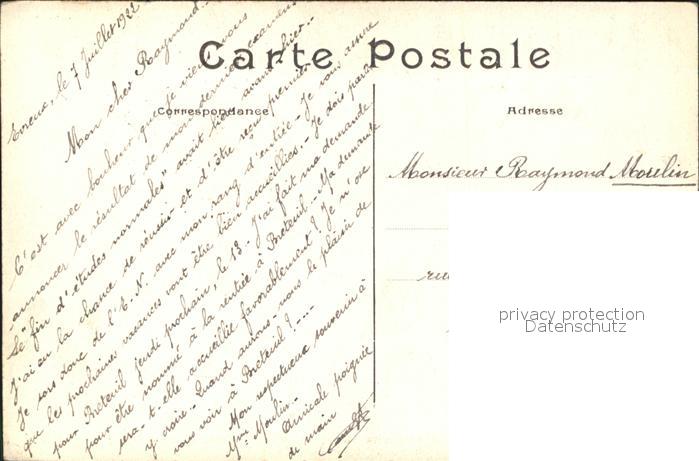 Carte Postale
Correspondance
Adresse
Evreux, le 7 Juillet 1922
Mon cher Raymond.
C'est avec bonheur que je viens vous
annoncer le résultat de mon dernier examen
"Le fin d'études normales" avait lieu avant-hier.
J'ai eu la chance de réussir et d'être reçu premier.
Je sors donc de l'E. N. avec mon rang d'entrée. Je vous assure
que les prochaines vacances vont être bien accueillies. Je dois partir
pour Breteuil jeudi prochain, le 13. J'ai fait ma demande
pour être nommé à la rentrée à Breteuil. Ma demande
sera-t-elle accueillie favorablement ? Je n'ose
y croire. Quand aurons-nous le plaisir de
vous voir à Breteuil ? ....
Mon respectueux souvenir à
Mme Moulin.
Amicale poignée
de main
Monsieur Raymond Moulin
privacy protection
Datenschutz